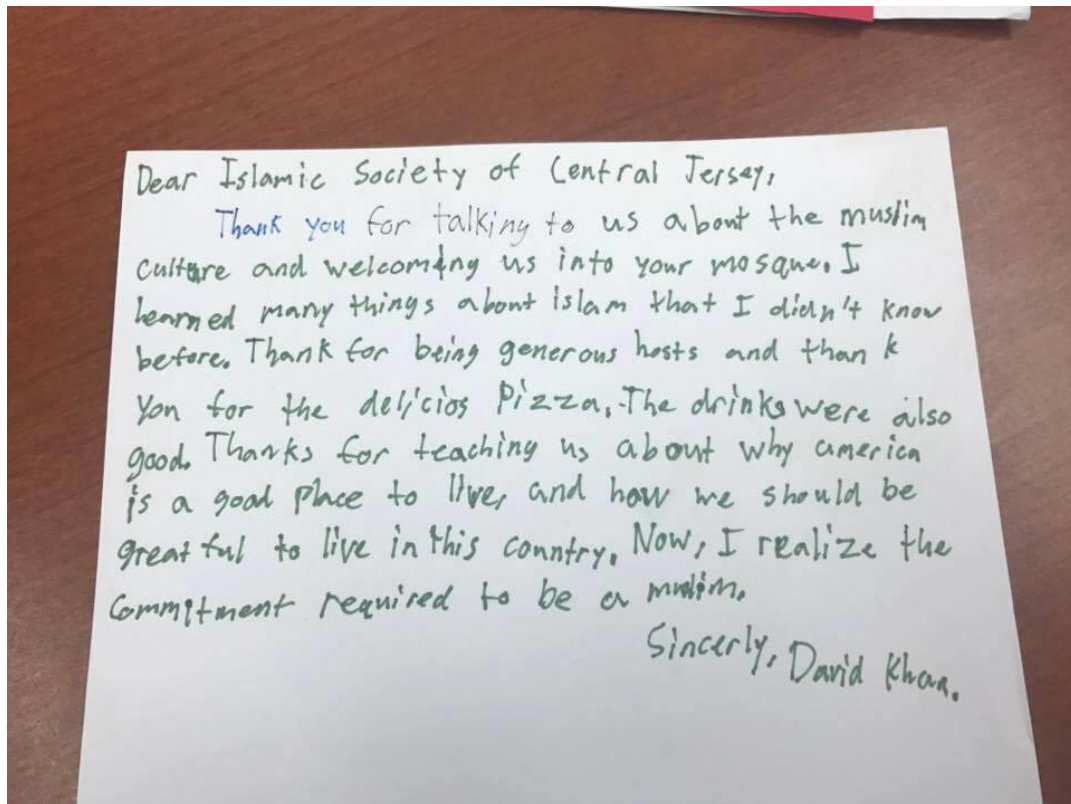 Dear Islamic Society of Central Jersey,
Thank you for talking to us about the muslim
culture and welcoming us into your mosque. I
learned many things about islam that I didn't know
before. Thank for being generous hosts and than k
you for the delicios Pizza. The drinks were also
good. Thanks for teaching us about why america
is a good place to live, and how we should be
great ful to live in this country. Now, I realize the
Commitment required to be a muslim.
Sincerly, David Khan.